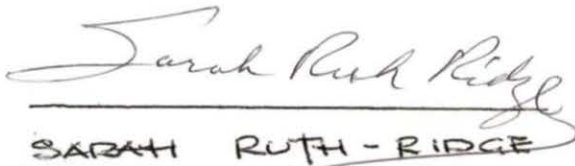 Sarah Ruth Ridge
SARAH RUTH-RIDGE